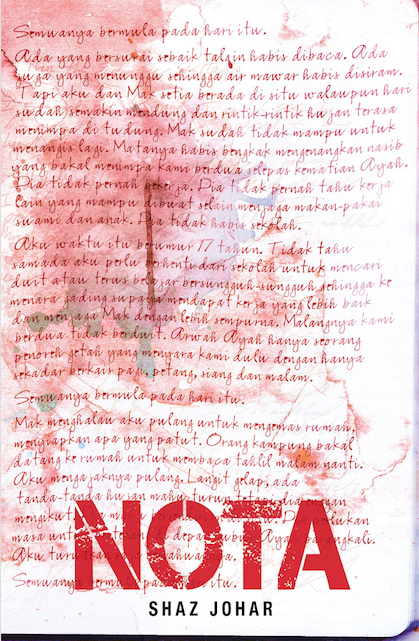 Semuanya bermula pada hari itu.
Ada yang bersurai sebaik talqin habis dibaca. Ada
juga yang menunggu sehingga air mawar habis disiram.
Tapi aku dan Mak setia berada di situ walaupun hari
sudah semakin mendung dan rintik-rintik hujan terasa
menimpa di tudung. Mak sudah tidak mampu untuk
menangis lagi. Matanya habis bengkak mengenangkan nasib
yang bakal menimpa kami berdua selepas kematian Ayah.
Dia tidak pernah bekerja. Dia tidak pernah tahu kerja
lain yang mampu dibuat selain menjaga makan-pakai
suami dan anak. Dia tidak habis sekolah.
Aku waktu itu berumur 17 tahun. Tidak tahu
samada aku perlu berhenti dari sekolah untuk mencari
duit atau terus belajar bersungguh-sungguh sehingga ke
menara gading supaya mendapat kerja yang lebih baik
dan menjaga Mak dengan lebih sempurna. Malangnya kami
berdua tidak berduit. Arwah Ayah hanya seorang
penoreh getah yang menyara kami dulu dengan hanya
sekadar berkais pagi, petang, siang dan malam.
Semuanya bermula pada hari itu.
Mak menghalau aku pulang untuk mengemas rumah,
menyiapkan apa yang patut. Orang kampung bakal
datang ke rumah untuk membaca tahlil malam nanti.
Aku mengajaknya pulang. Langit gelap, ada
tanda-tanda hujan mahu turun tetapi
mengikut perlukan
masa untuk di depan kubur Ayah barangkali.
Aku turutkan
Semuanya bermula pada hari itu.
NOTA
SHAZ JOHAR